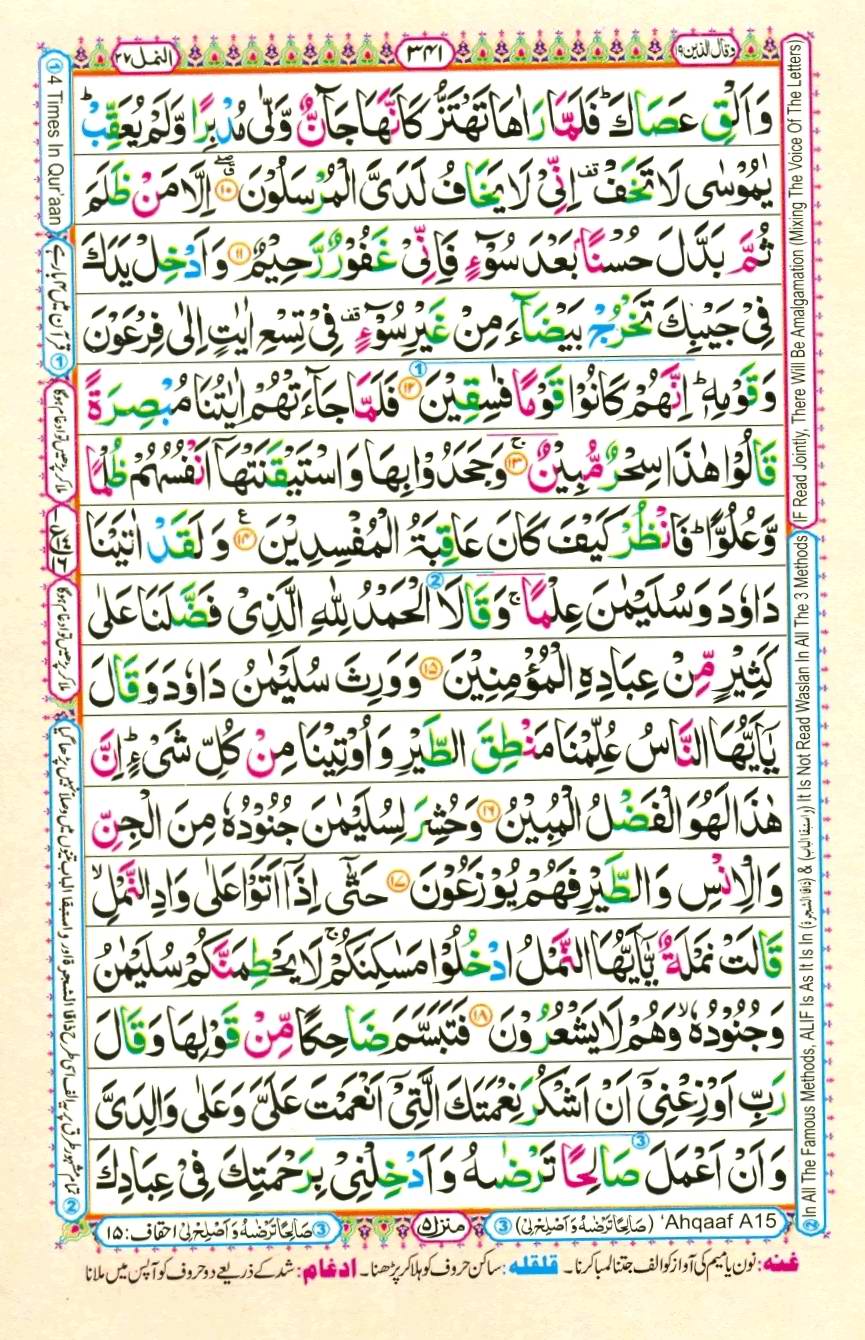 وقال الذین ۱۹
۳۴۱
النمل ۲۷
وَاَلْقِ عَصَاكَ ؕ فَلَمَّا رَاٰهَا تَهْتَزُّ كَاَنَّهَا جَآنٌّ وَّلّٰى مُدْبِرًا وَّلَمْ يُعَقِّبْ ؕ
يٰمُوْسٰى لَا تَخَفْ قف اِنِّىْ لَا يَخَافُ لَدَىَّ الْمُرْسَلُوْنَ ۱۰ اِلَّا مَنْ ظَلَمَ
ثُمَّ بَدَّلَ حُسْنًۢا بَعْدَ سُوْٓءٍ فَاِنِّىْ غَفُوْرٌ رَّحِيْمٌ ۱۱ وَاَدْخِلْ يَدَكَ
فِىْ جَيْبِكَ تَخْرُجْ بَيْضَآءَ مِنْ غَيْرِ سُوْٓءٍ قف فِىْ تِسْعِ اٰيٰتٍ اِلٰى فِرْعَوْنَ
وَقَوْمِهٖ ؕ اِنَّهُمْ كَانُوْا قَوْمًا فٰسِقِيْنَ ۱۲ فَلَمَّا جَآءَتْهُمْ اٰيٰتُنَا مُبْصِرَةً
قَالُوْا هٰذَا سِحْرٌ مُّبِيْنٌ ۱۳ ۚ وَجَحَدُوْا بِهَا وَاسْتَيْقَنَتْهَاۤ اَنْفُسُهُمْ ظُلْمًا
وَّعُلُوًّا ؕ فَانْظُرْ كَيْفَ كَانَ عَاقِبَةُ الْمُفْسِدِيْنَ ۱۴ ع وَلَقَدْ اٰتَيْنَا
دَاوٗدَ وَسُلَيْمٰنَ عِلْمًا ۚ وَقَالَا الْحَمْدُ لِلّٰهِ الَّذِىْ فَضَّلَنَا عَلٰى
كَثِيْرٍ مِّنْ عِبَادِهِ الْمُؤْمِنِيْنَ ۱۵ وَوَرِثَ سُلَيْمٰنُ دَاوٗدَ وَقَالَ
يٰۤاَيُّهَا النَّاسُ عُلِّمْنَا مَنْطِقَ الطَّيْرِ وَاُوْتِيْنَا مِنْ كُلِّ شَىْءٍ ؕ اِنَّ
هٰذَا لَهُوَ الْفَضْلُ الْمُبِيْنُ ۱۶ وَحُشِرَ لِسُلَيْمٰنَ جُنُوْدُهٗ مِنَ الْجِنِّ
وَالْاِنْسِ وَالطَّيْرِ فَهُمْ يُوْزَعُوْنَ ۱۷ حَتّٰۤى اِذَاۤ اَتَوْا عَلٰى وَادِ النَّمْلِ ۙ
قَالَتْ نَمْلَةٌ يّٰۤاَيُّهَا النَّمْلُ ادْخُلُوْا مَسٰكِنَكُمْ ۚ لَا يَحْطِمَنَّكُمْ سُلَيْمٰنُ
وَجُنُوْدُهٗ ۙ وَهُمْ لَا يَشْعُرُوْنَ ۱۸ فَتَبَسَّمَ ضَاحِكًا مِّنْ قَوْلِهَا وَقَالَ
رَبِّ اَوْزِعْنِىْۤ اَنْ اَشْكُرَ نِعْمَتَكَ الَّتِىْۤ اَنْعَمْتَ عَلَىَّ وَعَلٰى وَالِدَىَّ
وَاَنْ اَعْمَلَ صَالِحًا تَرْضٰىهُ وَاَدْخِلْنِىْ بِرَحْمَتِكَ فِىْ عِبَادِكَ
① 4 Times In Qur'aan
قرآن میں ۴ بار ہے ①
ملا کر پڑھیں تو ادغام ہوگا
ملا کر پڑھیں تو ادغام ہوگا
② تمام مشہور طرق پر یہ الف اسی طرح ذاقا الشجرة اور واستبقا الباب تینوں میں وصلاً نہیں پڑھا گیا
IF Read Jointly, There Will Be Amalgamation (Mixing The Voice Of The Letters)
② In All The Famous Methods, ALIF Is As It Is In (ذاقا الشجرة) & (واستبقا الباب) It Is Not Read Waslan In All The 3 Methods
③ (صَالِحًا تَرْضٰىهُ وَاَصْلِحْ لِىْ) 'Ahqaaf A15
منزل ۵
③ صَالِحًا تَرْضٰىهُ وَاَصْلِحْ لِىْ احقاف: ۱۵
غنه: نون یا میم کی آواز کو الف جتنا لمبا کرنا۔ قلقله: ساکن حروف کو ہلا کر پڑھنا۔ ادغام: شد کے ذریعے دو حروف کو آپس میں ملانا